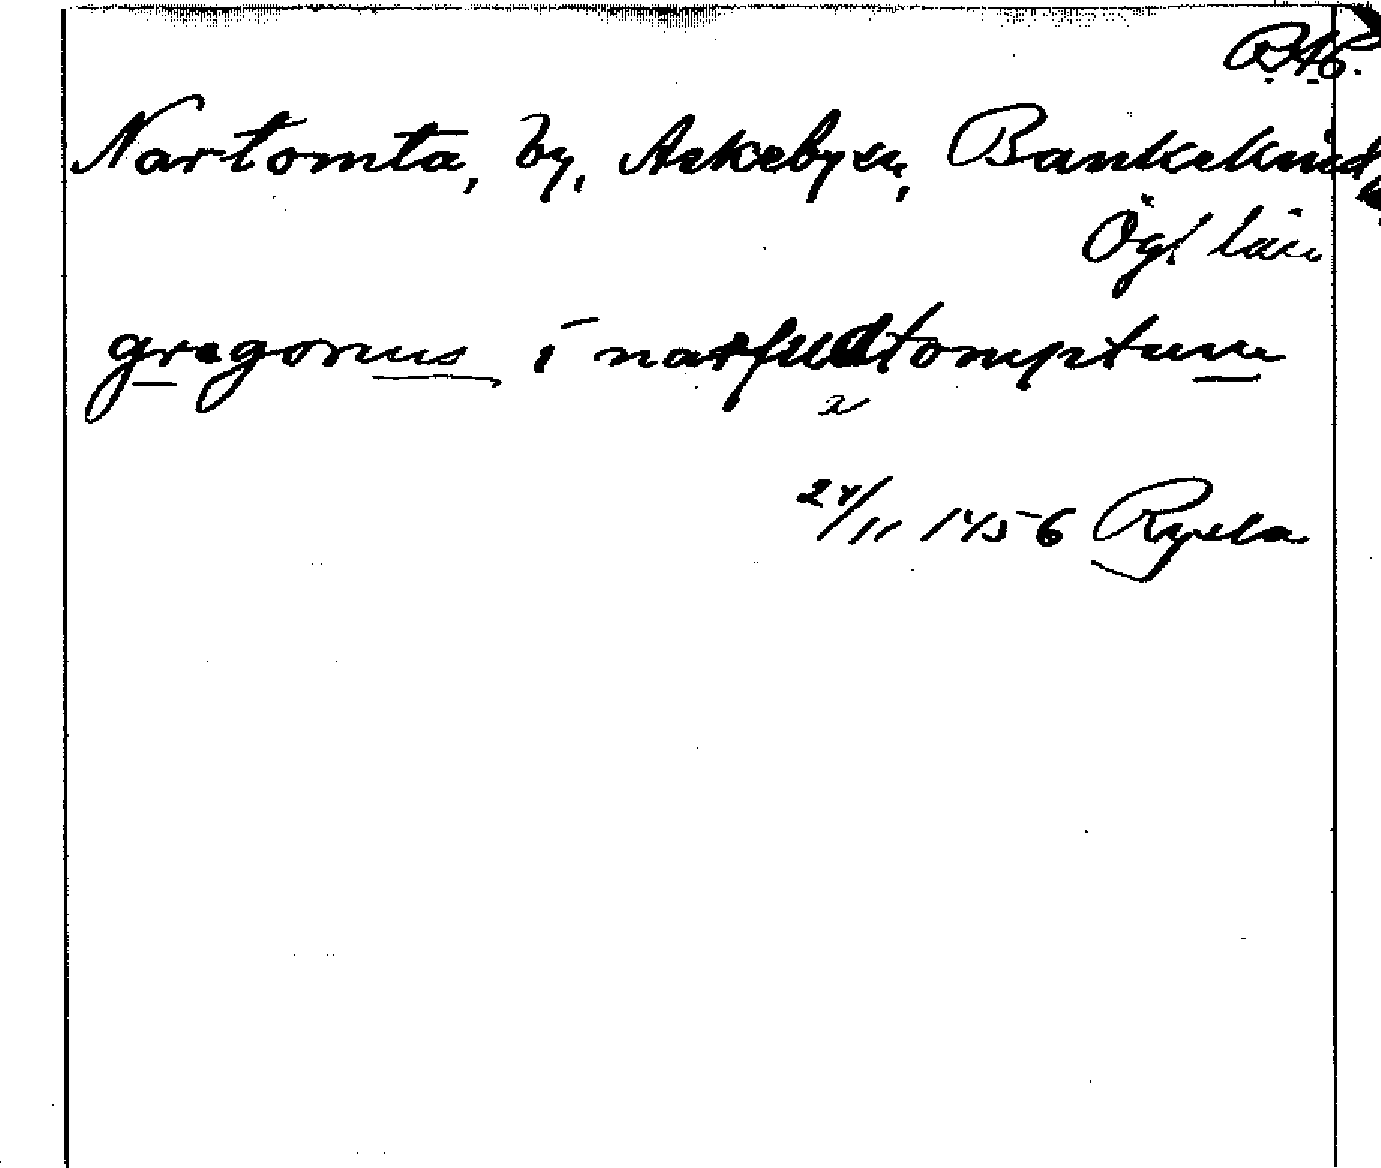 Nartomta, by, Askeby sn, Bankekind,
Ögl län
gregorius i narfuatomptum
a
24/11 1456 Rysla